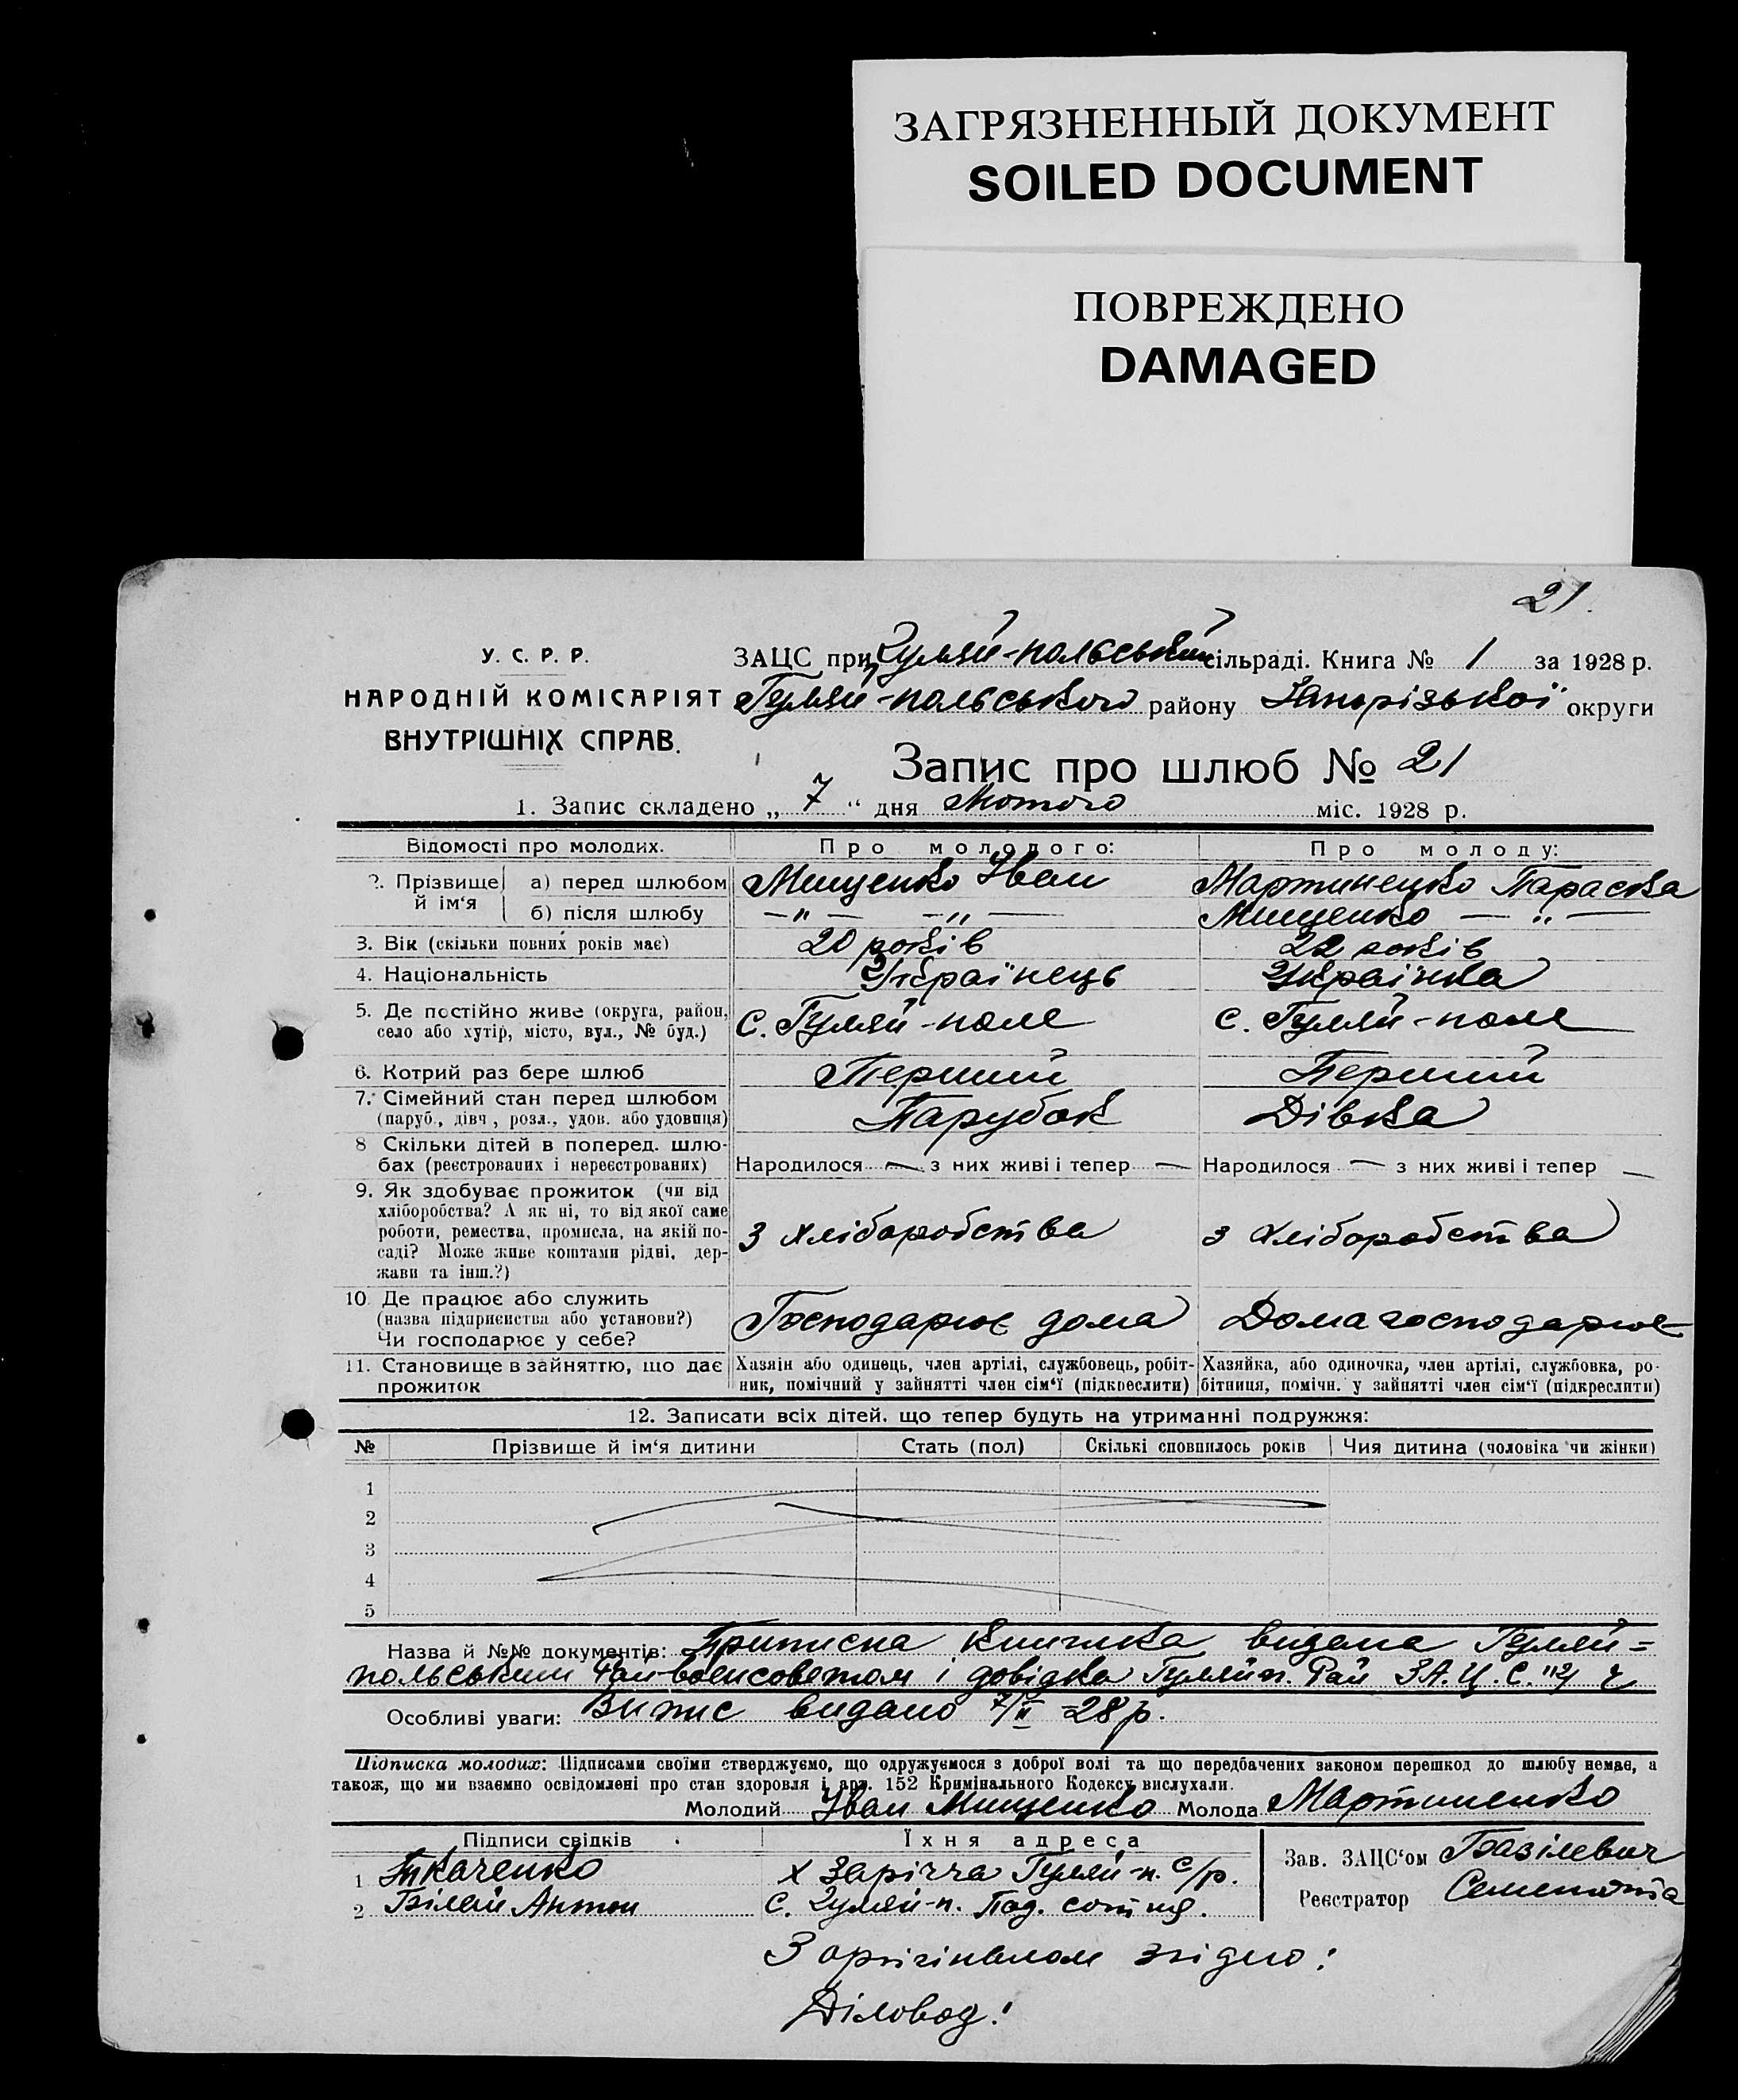 ЗАГРЯЗНЕННЫЙ ДОКУМЕНТ
SOILED DOCUMENT
ПОВРЕЖДЕНО
DAMAGED
21.
У. С. Р. Р.
НАРОДНІЙ КОМІСАРІЯТ
ВНУТРІШНІХ СПРАВ.
ЗАЦС при Гуляй-польській сільраді. Книга № 1 за 1928 р.
Гуляй-польського району Запорізької округи
Запис про шлюб № 21
1. Запис складено „ 7 “ дня Лютого міс. 1928 р.
Відомості про молодих. Про молодого: Про молоду:
2. Прізвище й ім‘я а) перед шлюбом Мищенко Іван Мартиненко Параска
б) після шлюбу —„— —„— Мищенко —„—
3. Вік (скільки повних років має) 20 років 22 років
4. Національність Українець Українка
5. Де постійно живе (округа, район,
село або хутір, місто, вул., № буд.) С. Гуляй-поле С. Гуляй-поле
6. Котрий раз бере шлюб Перший Перший
7. Сімейний стан перед шлюбом
(паруб., дівч., розл., удов. або удовиця) Парубок Дівка
8 Скільки дітей в поперед. шлю-
бах (реєстрованих і нереєстрованих) Народилося — з них живі і тепер — Народилося — з них живі і тепер —
9. Як здобуває прожиток (чи від
хліборобства? А як ні, то від якої саме
роботи, ремества, промисла, на якій по-
саді? Може живе коштами рідні, дер-
жави та інш.?)
З хліборобства З хліборобства
10. Де працює або служить
(назва підприємства або установи?)
Чи господарює у себе?
Господарює дома Дома господарює
11. Становище в зайняттю, що дає
прожиток
Хазяін або одинець, член артілі, службовець, робіт-
ник, помічний у зайнятті член сім‘ї (підкреслити)
Хазяйка, або одиночка, член артілі, службовка, ро-
бітниця, помічн. у зайнятті член сім‘ї (підкреслити)
12. Записати всіх дітей. що тепер будуть на утриманні подружжя:
№ Прізвище й ім‘я дитини Стать (пол) Скількі сповнилось років Чия дитина (чоловіка чи жінки)
1
2
3
4
5
Назва й №№ документів: Приписна книжка видана Гуляй=
польським Райвоенсоветом і довідка Гуляйп. Рай З.А.Ц.С.
Особливі уваги: Витис видано 7/II -28 р.
Підписка молодих: Підписами своїми стверджуємо, що одружуємося з доброї волі та що передбачених законом перешкод до шлюбу немає, а
також, що ми взаємно освідомлені про стан здоровля і арт. 152 Кримінального Кодексу вислухали.
Молодий Іван Мищенко Молода Мартиненко
Підписи свідків Їхня адреса
1 Ткаченко х Зарічча Гуляй-п. с/р.
2 Білай Антон С. Гуляй-п. Под. сотня.
Зав. ЗАЦС‘ом Базілевич
Реєстратор
З оригіналом згідно:
Діловод: